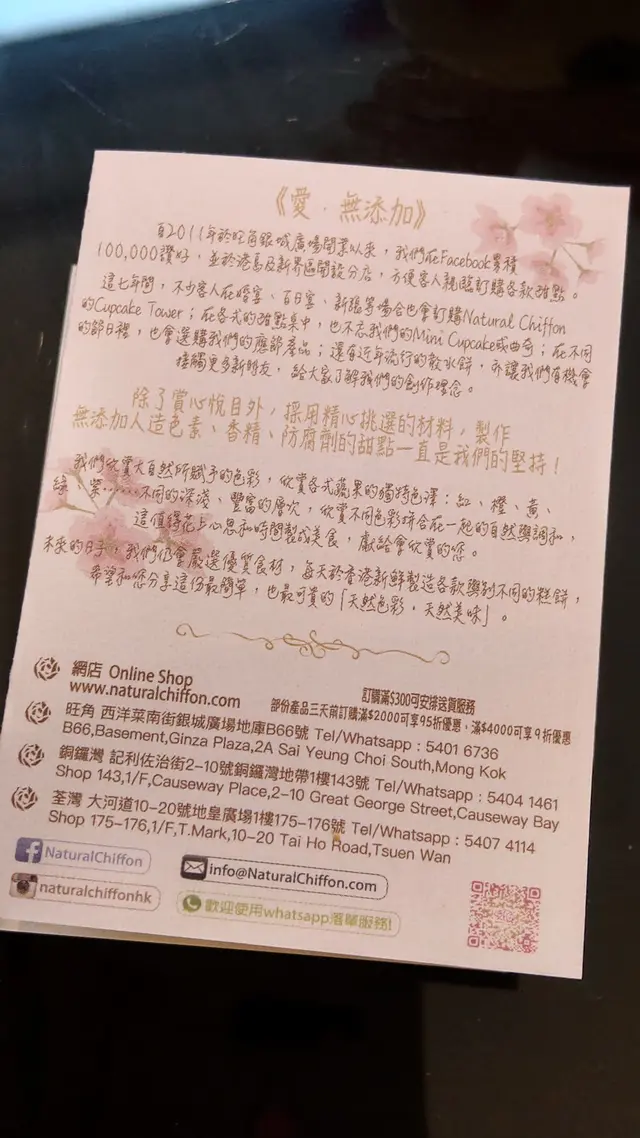 《愛．無添加》
自2011年於旺角銀城廣場開業以來，我們在Facebook累積
100,000讚好，並於港島及新界區開設分店，方便客人親臨訂購各款甜點。
這七年間，不少客人在婚宴、百日宴、新張等場合也會訂購Natural Chiffon
的Cupcake Tower；在各式的甜點桌中，也不忘我們的Mini Cupcake或曲奇；在不同
的節日裡，也會選購我們的應節產品；還有近年流行的散水餅，亦讓我們有機會
接觸更多新朋友，給大家了解我們的創作理念。
除了賞心悅目外，採用精心挑選的材料，製作
無添加人造色素、香精、防腐劑的甜點一直是我們的堅持！
我們欣賞大自然所賦予的色彩，欣賞各式蔬果的獨特色澤：紅、橙、黃、
綠、紫……不同的深淺、豐富的層次，欣賞不同色彩拼合在一起的自然與調和，
這值得花上心思和時間製成美食，獻給會欣賞的您。
未來的日子，我們仍會嚴選優質食材，每天於香港新鮮製造各款與別不同的糕餅，
希望和您分享這份最簡單，也最可貴的「天然色彩，天然美味」。
網店 Online Shop
www.naturalchiffon.com
訂購滿$300可安排送貨服務
部份產品三天前訂購滿$2000可享95折優惠，滿$4000可享9折優惠
旺角 西洋菜南街銀城廣場地庫B66號 Tel/Whatsapp : 5401 6736
B66,Basement,Ginza Plaza,2A Sai Yeung Choi South,Mong Kok
銅鑼灣 記利佐治街2-10號銅鑼灣地帶1樓143號 Tel/Whatsapp : 5404 1461
Shop 143,1/F,Causeway Place,2-10 Great George Street,Causeway Bay
荃灣 大河道10-20號地皇廣場1樓175-176號 Tel/Whatsapp : 5407 4114
Shop 175-176,1/F,T.Mark,10-20 Tai Ho Road,Tsuen Wan
NaturalChiffon
info@NaturalChiffon.com
naturalchiffonhk
歡迎使用whatsapp落單服務!